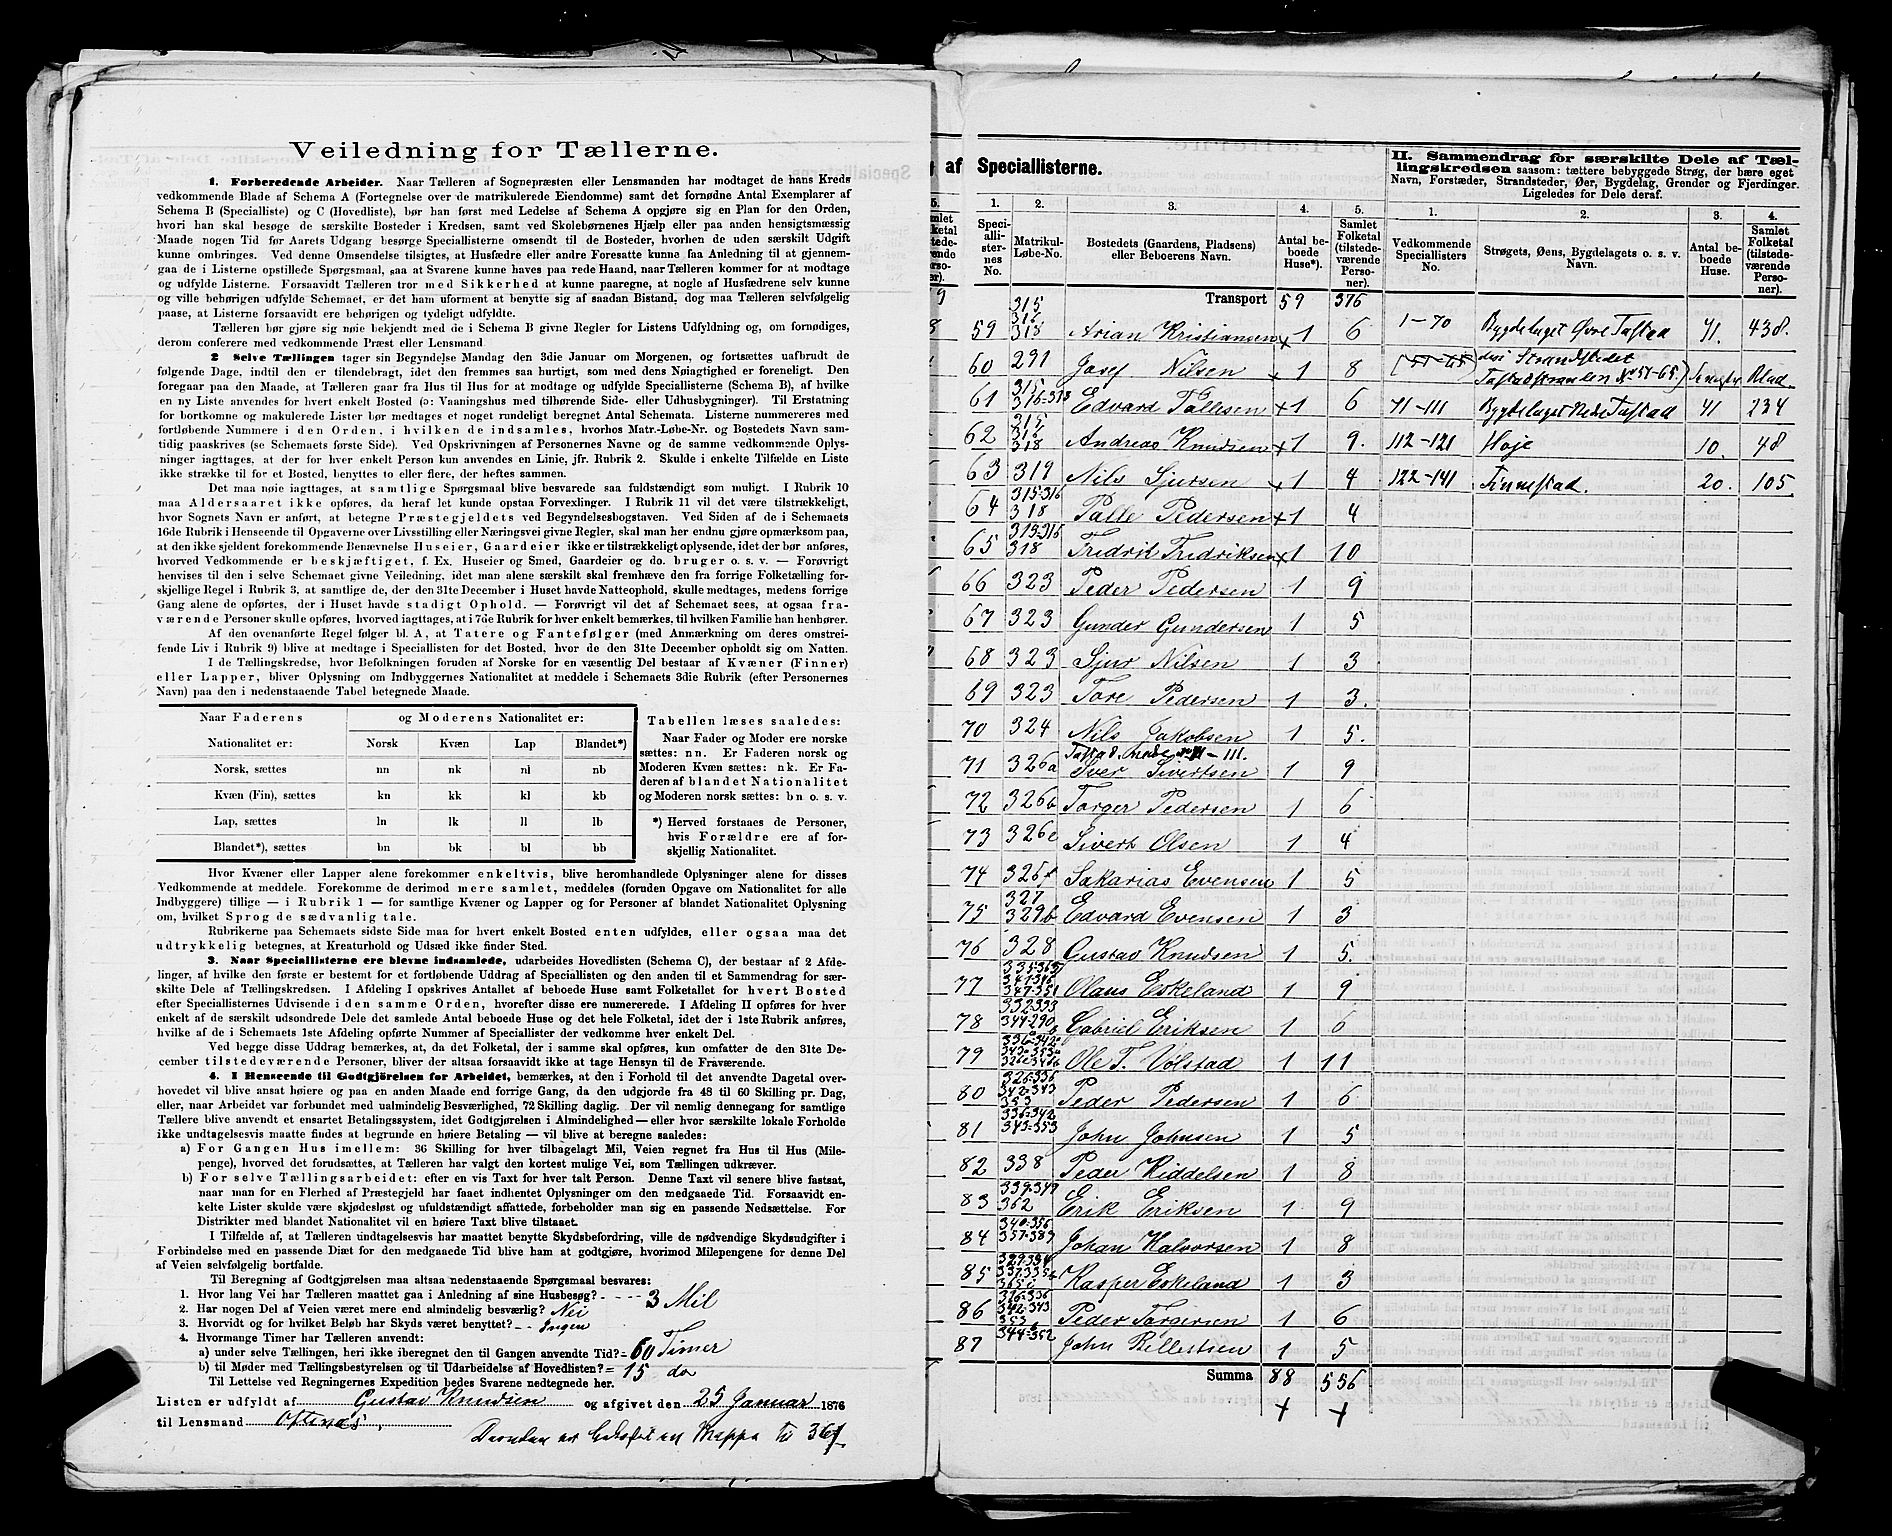 Veiledning for Tællerne.
1. Forberedende Arbeider. Naar Tælleren af Sognepræsten eller Lensmanden har modtaget de hans Kreds
vedkommende Blade af Schema A (Fortegnelse over de matrikulerede Eiendomme) samt det fornødne Antal Exemplarer af
Schema B (Specialliste) og C (Hovedliste), bør han først med Ledelse af Schema A opgjøre sig en Plan for den Orden,
hvori han skal besøge de særskilte Bosteder i Kredsen, samt ved Skolebørnenes Hjælp eller paa anden hensigtsmæssig
Maade nogen Tid før Aarets Udgang besørge Speciallisterne omsendt til de Bosteder, hvorhen de uden særskilt Udgift
kunne ombringes. Ved denne Omsendelse tilsigtes, at Husfædre eller andre Foresatte kunne faa Anledning til at gjennem-
gaa de i Listerne opstillede Spørgsmaal, saa at Svarene kunne haves paa rede Haand, naar Tælleren kommer for at modtage
og udfylde Listerne. Forsaavidt Tælleren tror med Sikkerhed at kunne paaregne, at nogle af Husfædrene selv kunne
og ville behørigen udfylde Schemaet, er det ham uforment at benytte sig af saadan Bistand, dog maa Tælleren selvfølgelig
paase, at Listerne forsaavidt ere behørigen og tydeligt udfyldte.
Tælleren bør gjøre sig nøie bekjendt med de i Schema B givne Regler for Listens Udfyldning og, om fornødiges,
derom conferere med vedkommende Præst eller Lensmand.
2 Selve Tællingen tager sin Begyndelse Mandag den 3die Januar om Morgenen, og fortsættes uafbrudt de
følgende Dage, indtil den er tilendebragt, idet den fremmes saa hurtigt, som med dens Nøiagtighed er foreneligt. Den
foregaar paa den Maade, at Tælleren gaar fra Hus til Hus for at modtage og udfylde Speciallisterne (Schema B), af hvilke
en ny Liste anvendes for hvert enkelt Bosted (ɔ: Vaaningshus med tilhørende Side- eller Udhusbygninger). Til Erstatning
for bortkomne og makulerede Lister bør medtages et noget rundeligt beregnet Antal Schemata. Listerne nummereres med
fortløbende Nummere i den Orden, i hvilken de indsamles, hvorhos Matr.-Løbe-Nr. og Bostedets Navn sam-
tidig paaskrives (se Schemaets første Side). Ved Opskrivningen af Personernes Navne og de samme vedkommende Oplys-
ninger iagttages, at der for hver enkelt Person kun anvendes en Linie, jfr. Rubrik 2. Skulde i enkelte Tilfælde en Liste
ikke strække til for et Bosted, benyttes to eller flere, der heftes sammen.
Det maa nøie iagttages, at samtlige Spørgsmaal blive besvarede saa fuldstændigt som muligt. I Rubrik 10
maa Aldersaaret ikke opføres, da heraf let kunde opstaa Forvexlinger. I Rubrik 11 vil det være tilstrækkeligt,
hvor Sognets Navn er anført, at betegne Præstegjeldets ved Begyndelsesbogstaven. Ved Siden af de i Schemaets
16de Rubrik i Henseende til Opgaverne over Livsstilling eller Næringsvei givne Regler, skal man her endnu gjøre opmærksom paa,
at den ikke sjeldent forekommende Benævnelse Huseier, Gaardeier ikke er tilstrækkeligt oplysende, idet der bør anføres,
hvorved Vedkommende er beskjæftiget, f. Ex. Huseier og Smed, Gaardeier og do. bruger o. s. v. — Forøvrigt
henvises til den i selve Schemaet givne Veiledning, idet man alene særskilt skal fremhæve den fra forrige Folketælling for-
skjellige Regel i Rubrik 3, at samtlige de, der den 31te December i Huset havde Natteophold, skulle medtages, medens forrige
Gang alene de opførtes, der i Huset havde stadigt Ophold. — Forøvrigt vil det af Schemaet sees, at ogsaa fra-
værende Personer skulle opføres, hvorved iagttages, at i 7de Rubrik for hver enkelt bemærkes, til hvilken Familie han henhører.
Af den ovenanførte Regel følger bl. A, at Tatere og Fantefølger (med Anmærkning om deres omstrei-
fende Liv i Rubrik 9) blive at medtage i Speciallisten for det Bosted, hvor de den 31te December opholdt sig om Natten.
I de Tællingskredse, hvor Befolkningen foruden af Norske for en væsentlig Del bestaar af Kvæner (Finner)
eller Lapper, bliver Oplysning om Indbyggernes Nationalitet at meddele i Schemaets 3die Rubrik (efter Personernes
Navn) paa den i nedenstaaende Tabel betegnede Maade.
Naar Faderens og Moderens Nationalitet er:
Nationalitet er: Norsk Kvæn Lap Blandet*)
Norsk, sættes nn nk nl nb
Kvæn (Fin), sættes kn kk kl kb
Lap, sættes ln lk ll lb
Blandet*), sættes bn bk bl bb
Tabellen læses saaledes:
Naar Fader og Moder ere norske
sættes: nn. Er Faderen norsk og
Moderen Kvæn sættes: nk. Er Fa-
deren af blandet Nationalitet
og Moderen norsk sættes: bn o. s. v.
*) Herved forstaaes de Personer,
hvis Forældre ere af for-
skjellig Nationalitet.
Hvor Kvæner eller Lapper alene forekommer enkeltvis, blive heromhandlede Oplysninger alene for disses
Vedkommende at meddele. Forekomme de derimod mere samlet, meddeles (foruden Opgave om Nationalitet for alle
Indbyggere) tillige — i Rubrik 1 — for samtlige Kvæner og Lapper og for Personer af blandet Nationalitet Oplysning
om, hvilket Sprog de sædvanlig tale.
Rubrikerne paa Schemaets sidste Side maa for hvert enkelt Bosted enten udfyldes, eller ogsaa maa det
udtrykkelig betegnes, at Kreaturhold og Udsæd ikke finder Sted.
3. Naar Speciallisterne ere blevne indsamlede, udarbeides Hovedlisten (Schema C), der bestaar af 2 Afde-
linger, af hvilke den første er bestemt for et fortløbende Uddrag af Speciallisten og den anden til et Sammendrag for sær-
skilte Dele af Tællingskredsen. I Afdeling I opskrives Antallet af beboede Huse samt Folketallet for hvert Bosted
efter Speciallisternes Udvisende i den samme Orden, hvorefter disse ere numererede. I Afdeling II opføres for hver
enkelt af de særskilt udsondrede Dele det samlede Antal beboede Huse og det hele Folketal, idet der i 1ste Rubrik anføres,
hvilke af de i Schemaets 1ste Afdeling opførte Nummer af Speciallister der vedkomme hver enkelt Del.
Ved begge disse Uddrag bemærkes, at, da det Folketal, der i samme skal opføres, kun omfatter de den 31te De-
cember tilstedeværende Personer, bliver der altsaa forsaavidt ikke at tage Hensyn til de Fraværende.
4. I Henseende til Godtgjörelsen for Arbeidet, bemærkes, at den i Forhold til det anvendte Dagetal over-
hovedet vil blive ansat høiere og paa en anden Maade end forrige Gang, da den udgjorde fra 48 til 60 Skilling pr. Dag,
eller, naar Arbeidet var forbundet med ualmindelig Besværlighed, 72 Skilling daglig. Der vil nemlig dennegang for samtlige
Tællere blive anvendt et ensartet Betalingssystem, idet Godtgjørelsen i Almindelighed — eller hvor særskilte lokale Forholde
ikke undtagelsesvis maatte findes at begrunde en høiere Betaling — vil blive at beregne saaledes:
a) For Gangen Hus imellem: 36 Skilling for hver tilbagelagt Mil, Veien regnet fra Hus til Hus (Mile-
penge), hvorved det forudsættes, at Tælleren har valgt den kortest mulige Vei, som Tællingen udkræver.
b) For selve Tællingsarbeidet: efter en vis Taxt for hver talt Person. Denne Taxt vil senere blive fastsat,
naar man for en Flerhed af Præstegjeld har faaet indhentet Oplysninger om den medgaaede Tid. Forsaavidt en-
kelte Lister skulde være skjødesløst og ufuldstændigt affattede, forbeholder man sig en passende Nedsættelse. For
Distrikter med blandet Nationalitet vil en høiere Taxt blive tilstaaet.
I Tilfælde af, at Tælleren undtagelsesvis har maattet benytte Skydsbefordring, ville de nødvendige Skydsudgifter i
Forbindelse med en passende Diæt for den medgaaede Tid blive ham at godtgjøre, hvorimod Milepengene for denne Del
af Veien selvfølgelig bortfalde.
Til Beregning af Godtgjørelsen maa altsaa nedenstaaende Spørgsmaal besvares:
1. Hvor lang Vei har Tælleren maattet gaa i Anledning af sine Husbesøg? - - - - 3 Mil
2. Har nogen Del af Veien været mere end almindelig besværlig? Nei
3. Hvorvidt og for hvilket Beløb har Skyds været benyttet? - - Ingen
4. Hvormange Timer har Tælleren anvendt:
a) under selve Tællingen, heri ikke iberegnet den til Gangen anvendte Tid? = 60 Timer
b) til Møder med Tællingsbestyrelsen og til Udarbeidelse af Hovedlisten? = 15 do
Til Lettelse ved Regningernes Expedition bedes Svarene nedtegnede her.
Listen er udfyldt af Gustav Knudsen og afgivet den 25 Januar 1876
til Lensmand Oftenæs,
af Speciallisterne.
1. 2. 3. 4. 5.
Speci-
allis-
ternes
No. Matrikul-
Løbe-No. Bostedets (Gaardens, Pladsens)
eller Beboerens Navn. Antal be-
boede
Huse*). Samlet
Folketal
(tilstede-
værende
Perso-
ner).
Transport 59 376
59 315 316 318 Arian Kristiansen × 1 6
60 291 Josef Nilsen × 1 8
61 315 316-318 Edvard Tallesen × 1 6
62 315 316 318 Andreas Knudsen × 1 9.
63 319 Nils Sjursen × 1 4
64 315-316 318 Palle Pedersen × 1 4
65 315-316 318 Fredrik Fredriksen × 1 10
66 323 Peder Pedersen 1 9
67 323 Gunder Gundersen 1 5
68 323 Sjur Nilsen 1 3
69 323 Tore Pedersen 1 3.
70 324 Nils Jakobsen 1 5.
Tastad nedre 71-111.
71 326a Iver Sivertsen 1 9
72 326b Torger Pedersen 1 6
73 326c Sivert Olsen 1 4
74 326f Sakarias Evensen 1 5
75 327 329b Edvard Evensen 1 3
76 328 Gustav Knudsen 1 5.
77 Olaus Eskeland 1 9
78 Gabriel Eriksen 1 6
79 Ole T. Volstad 1 11
80 326-336 342-343 353 Peder Pedersen 1 6
81 336-342 343-353 John Johnsen 1 5
82 338 Peder Kiddelsen 1 8
83 339-347 362 Erik Eriksen 1 9
84 340-356 357-389 Johan Halvorsen 1 8
85 Kasper Eskeland 1 3
86 326-336 342-343 353 Peder Torgersen 1 6
87 344-352 John Rellestien 1 5
Summa 88 556
II. Sammendrag for særskilte Dele af Tæl-
lingskredsen saasom: tættere bebyggede Strøg, der bære eget
Navn, Forstæder, Strandsteder, Øer, Bygdelag, Grender og Fjerdinger.
Ligeledes for Dele deraf.
1. 2. 3. 4.
Vedkommende
Speciallisters
No. Strøgets, Øens, Bygdelagets o. s. v.
Navn. Antal be-
boede
Huse. Samlet
Folketal
(tilstede-
værende
Perso-
ner).
1-70 Bygdelaget Øvre Tastad 71. 438.
(51-65) Strandstedet
Tastadstranden No 51-65.) Blad
71-111 Bygdelaget Nedre Tastad 41 234
112-121 Høje 10. 48
122-141 Finnestad. 20. 105